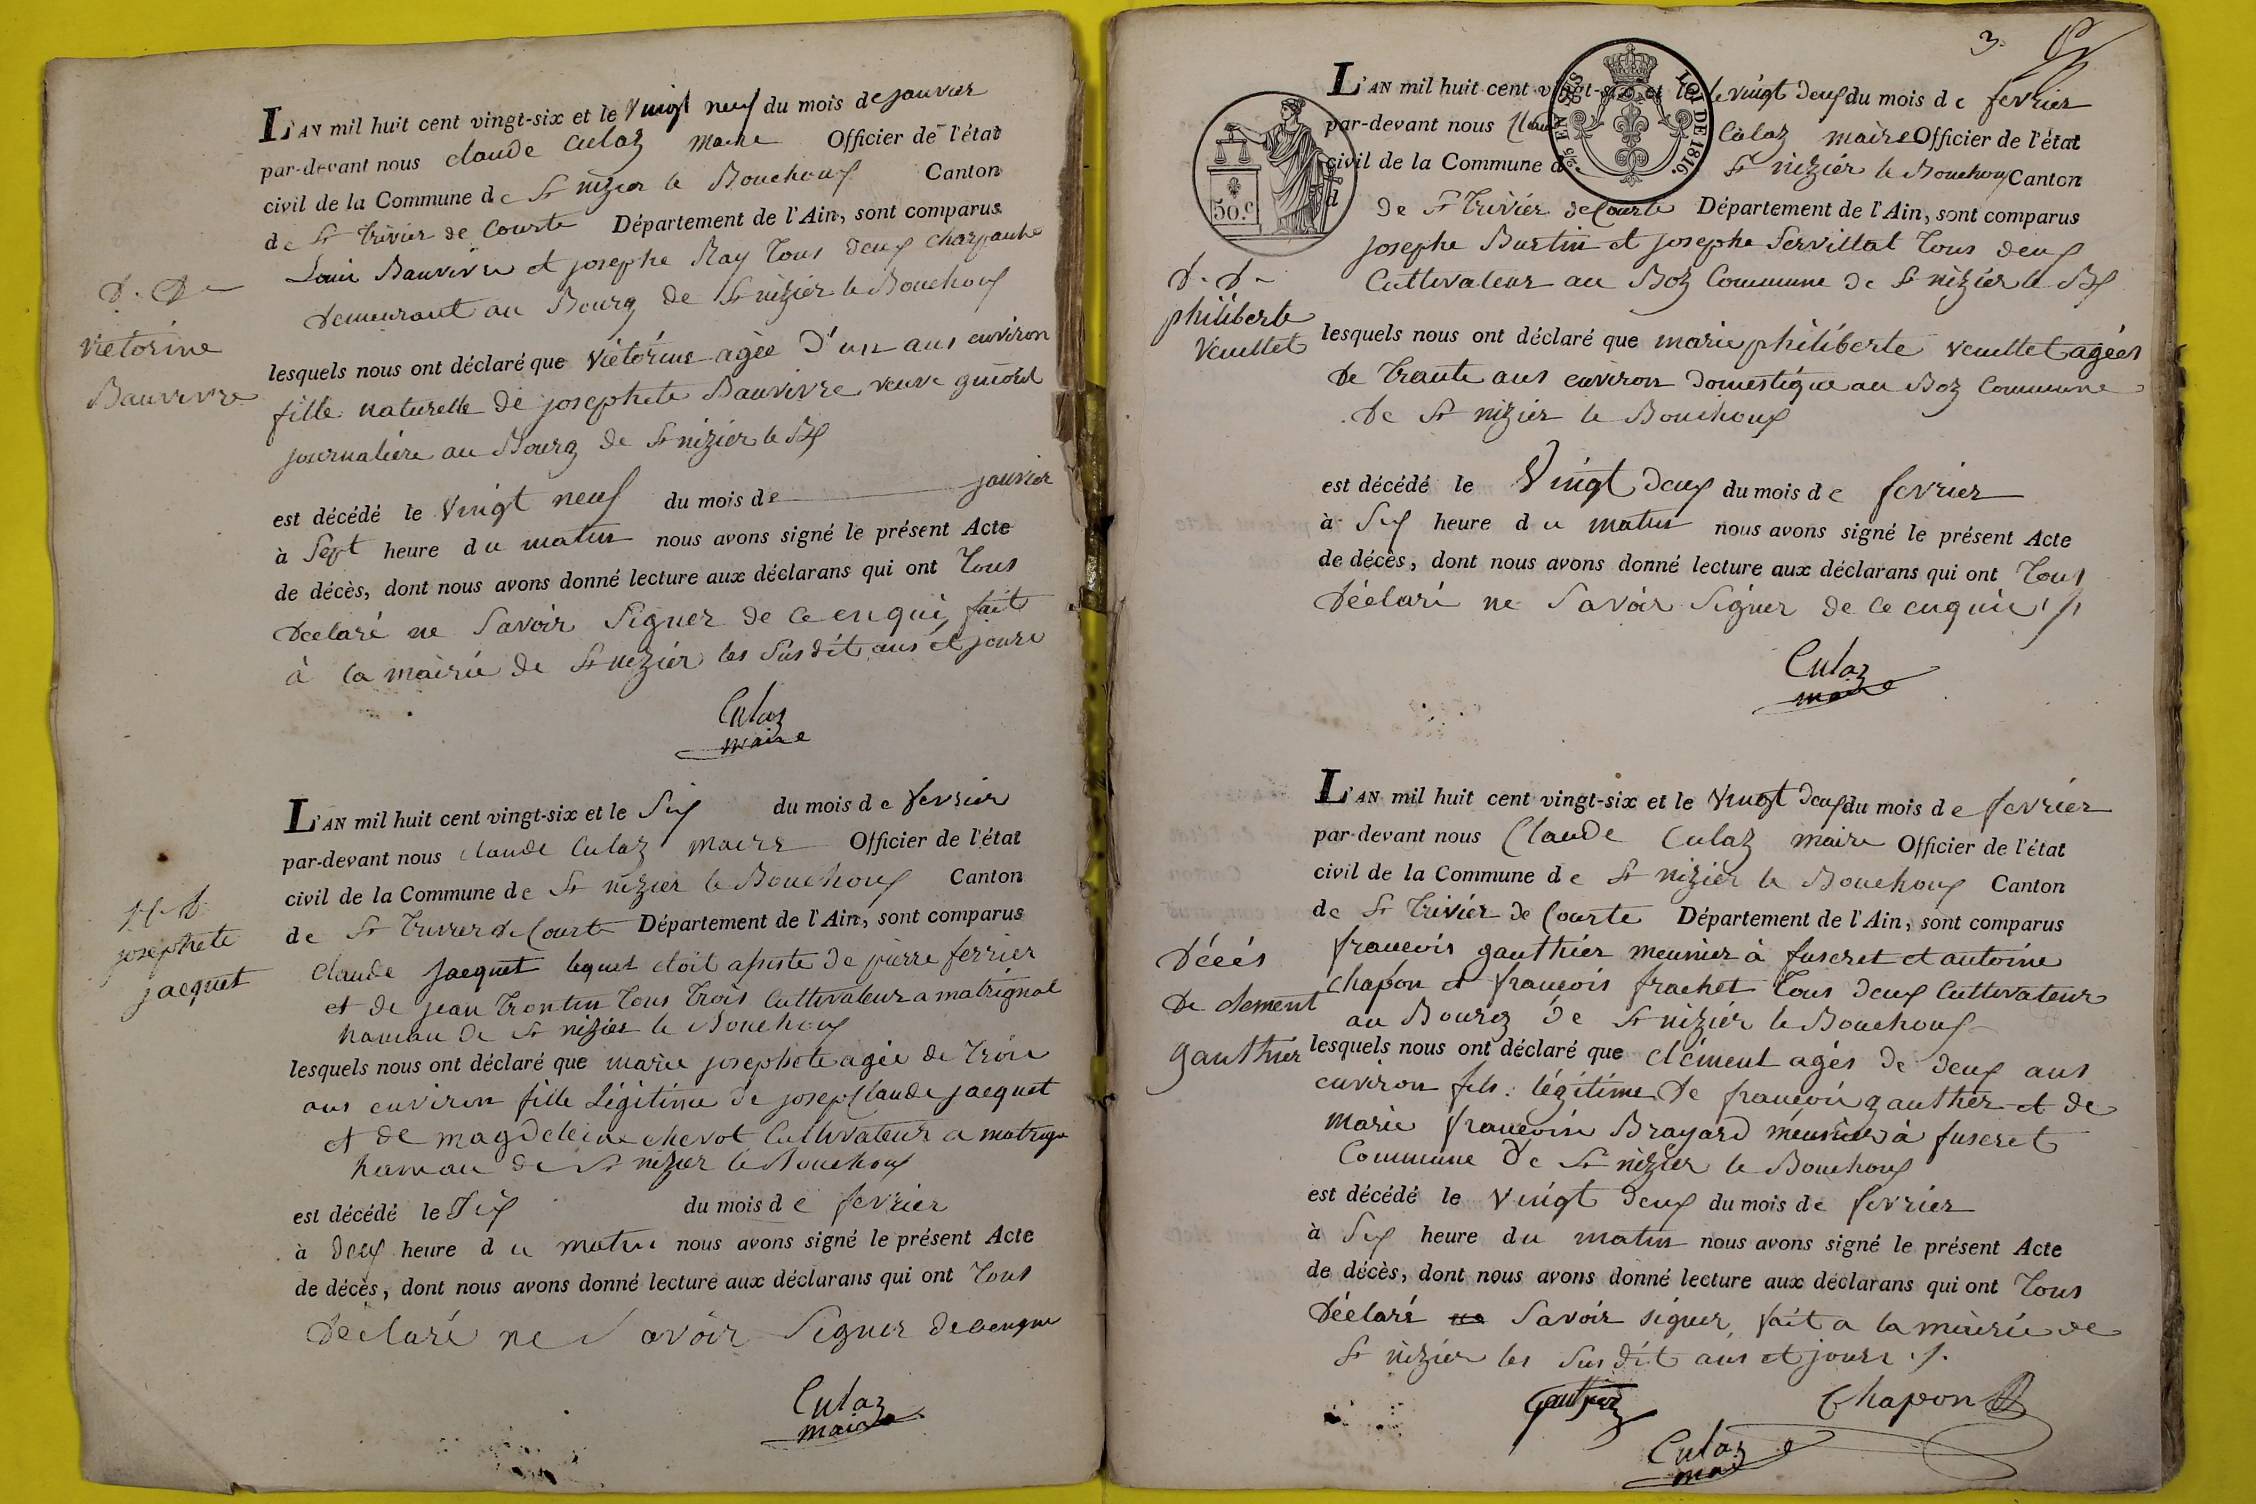 L'AN mil huit cent vingt-six et le Vingt neuf du mois de janvier
par-devant nous claude Culaz maire Officier de l'état
civil de la Commune de St nizier le Bouchoux Canton
de St trivier de Courte Département de l'Ain, sont comparus
Loui Bauvivre et josephe Ray tous deux charpantie
demeurant au Bourg de St nizier le Bouchoux
D. D
victorine
Bauvivre
lesquels nous ont déclaré que victorine agèe d'un ans environ
fille naturelle de josephete Bauvivre veuve
journalière au Bourg de St nizier le Bx
est décédé le Vingt neuf du mois de janvier
à Sept heure du matin nous avons signé le présent Acte
de décès, dont nous avons donné lecture aux déclarans qui ont tous
declaré ne Savoir Signer de ce enqui, fait
à la mairie de St nizier les Susdit ans et jours
Culaz
maire
L'AN mil huit cent vingt-six et le Six du mois de fevrier
par-devant nous claude Culaz maire Officier de l'état
civil de la Commune de St nizier le Bouchoux Canton
de St trivier de Courte Département de l'Ain, sont comparus
claude jacquet lequel etoit assiste de pierre ferrier
et de jean trontin tous trois Cultivateur a matrignat
hameau de St nizier le Bouchoux
josephete
jacquet
lesquels nous ont déclaré que marie josephete agée de trois
ans environ fille Légitime de josep Claude jacquet
et de magdeleine chevot Cultivateur a matrigna
hameau de St nizier le Bouchoux
est décédé le Six du mois de fevrier
à deux heure du matin nous avons signé le présent Acte
de décès, dont nous avons donné lecture aux déclarans qui ont tous
déclaré ne Savoir Signer de cenque
Culaz
maire
3.
L'AN mil huit cent vingt-six et le le vingt deux du mois de fevrier
par-devant nous Claude Culaz maire Officier de l'état
civil de la Commune d St nizier le Bouchoux Canton
d de St trivier de Courte Département de l'Ain, sont comparus
25 EN SUS
LOI DE 1816.
50.c
josephe Burtin et josephe Servillat tous deux
Cultivateur au Boz Commune de St nizier le Bx
D. D
philiberte
Veuillet
lesquels nous ont déclaré que marie philiberte veuillet agées
de trante ans environ domestique au Boz Commune
de St nizier le Bouchoux
est décédé le Vingt deux du mois de fevrier
à Six heure du matin nous avons signé le présent Acte
de décès, dont nous avons donné lecture aux déclarans qui ont tous
déclaré ne Savoir Signer de ce enquie
Culaz
maire
L'AN mil huit cent vingt-six et le Vingt deux du mois de fevrier
par-devant nous Claude Culaz maire Officier de l'état
civil de la Commune de St nizier le Bouchoux Canton
de St trivier de Courte Département de l'Ain, sont comparus
francois gauthier meunier à fuseret et antoine
chapon et francois frachet tous deux Cultivateur
au Bourg de St nizier le Bouchoux
Décés
de clement
gauthier
lesquels nous ont déclaré que clément agés de deux ans
environ fils légitime de francois gauthier et de
marie francoise Brayard meunier à fuseret
Commune de St nizier le Bouchoux
est décédé le vingt deux du mois de fevrier
à Six heure du matin nous avons signé le présent Acte
de décès, dont nous avons donné lecture aux déclarans qui ont tous
déclaré ne Savoir signer, fait a la mairie de
St nizier les Susdit ans et jours
Gauthier
Chapon
Culaz
maire